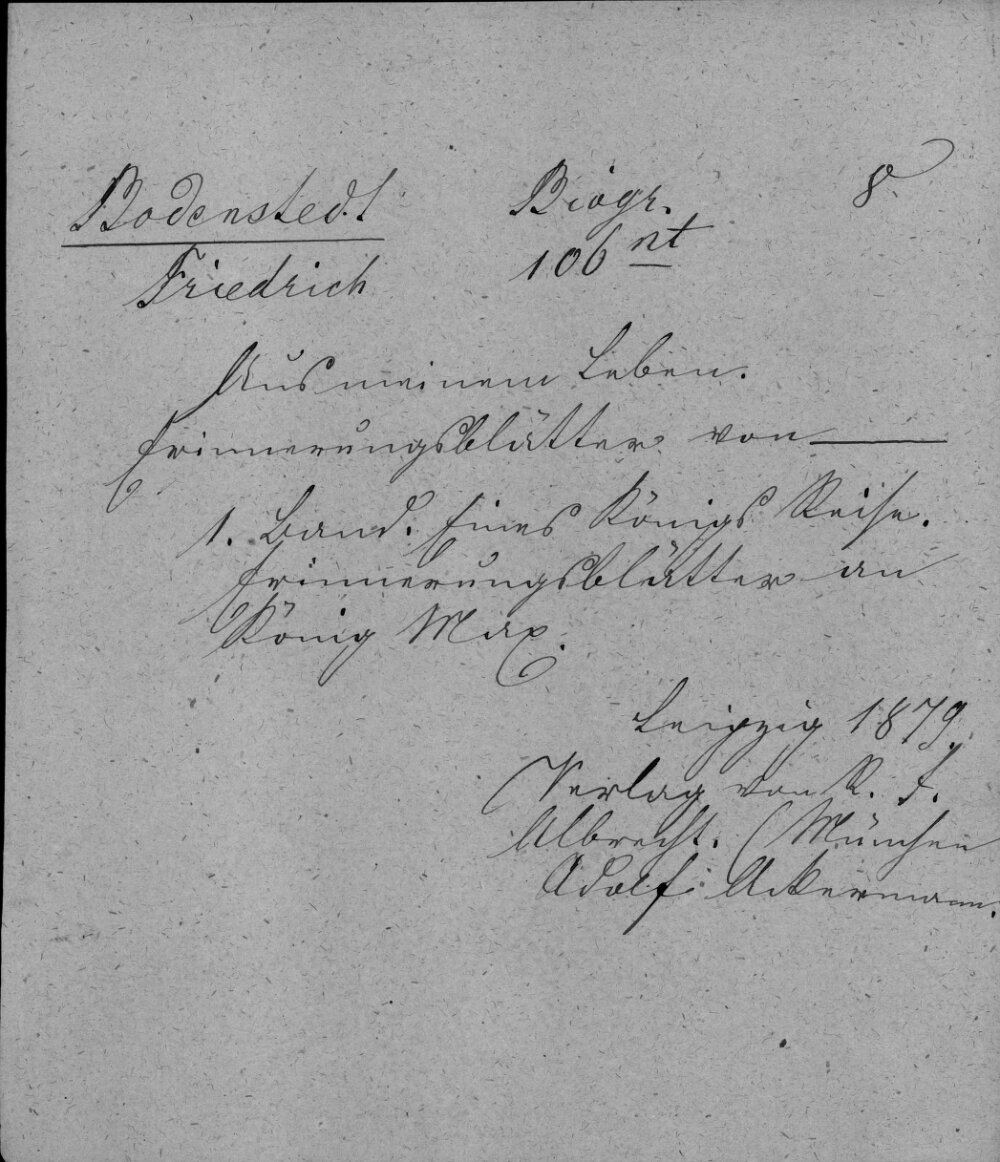 Bodenstedt Biogr. 8.
Friedrich 106 nt
Aus meinem Leben.
Erinnerungsblätter von ———
1. Band. Eines Königs Reise.
Erinnerungsblätter an
König Max.
Leipzig 1879.
(Verlag von R. F.
Albrecht. (München
Adolf Ackermann.